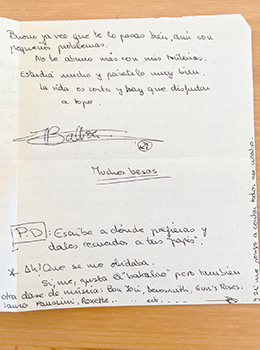 Bueno ya veo que te lo pasas bien, aún con
pequeños problemas.
No te aburro más con mis
Estudia mucho y pásatelo muy bien.
la vida es corta y hay que disfrutar
a tope.
Muchos besos
P.D: Escribe a dónde prefieras y
dales recuerdos a tus "papis".
* Ah! Que se me olvidaba.
Si, me gusta el "bakalao" pero también
otra clase de música: Bon Jovi, Aerosmith, Gun's Roses,
Laura Paussini, Roxette... etc...
y si me pongo a contar todos no acabo